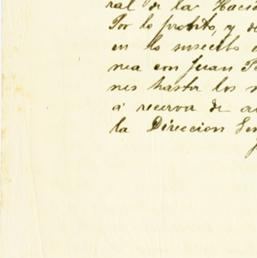 ral de la Hacie
Por lo probito, y de
en lo suscrito
nea con Juan
nes hasta los
a reserva de a
la Direccion Gen